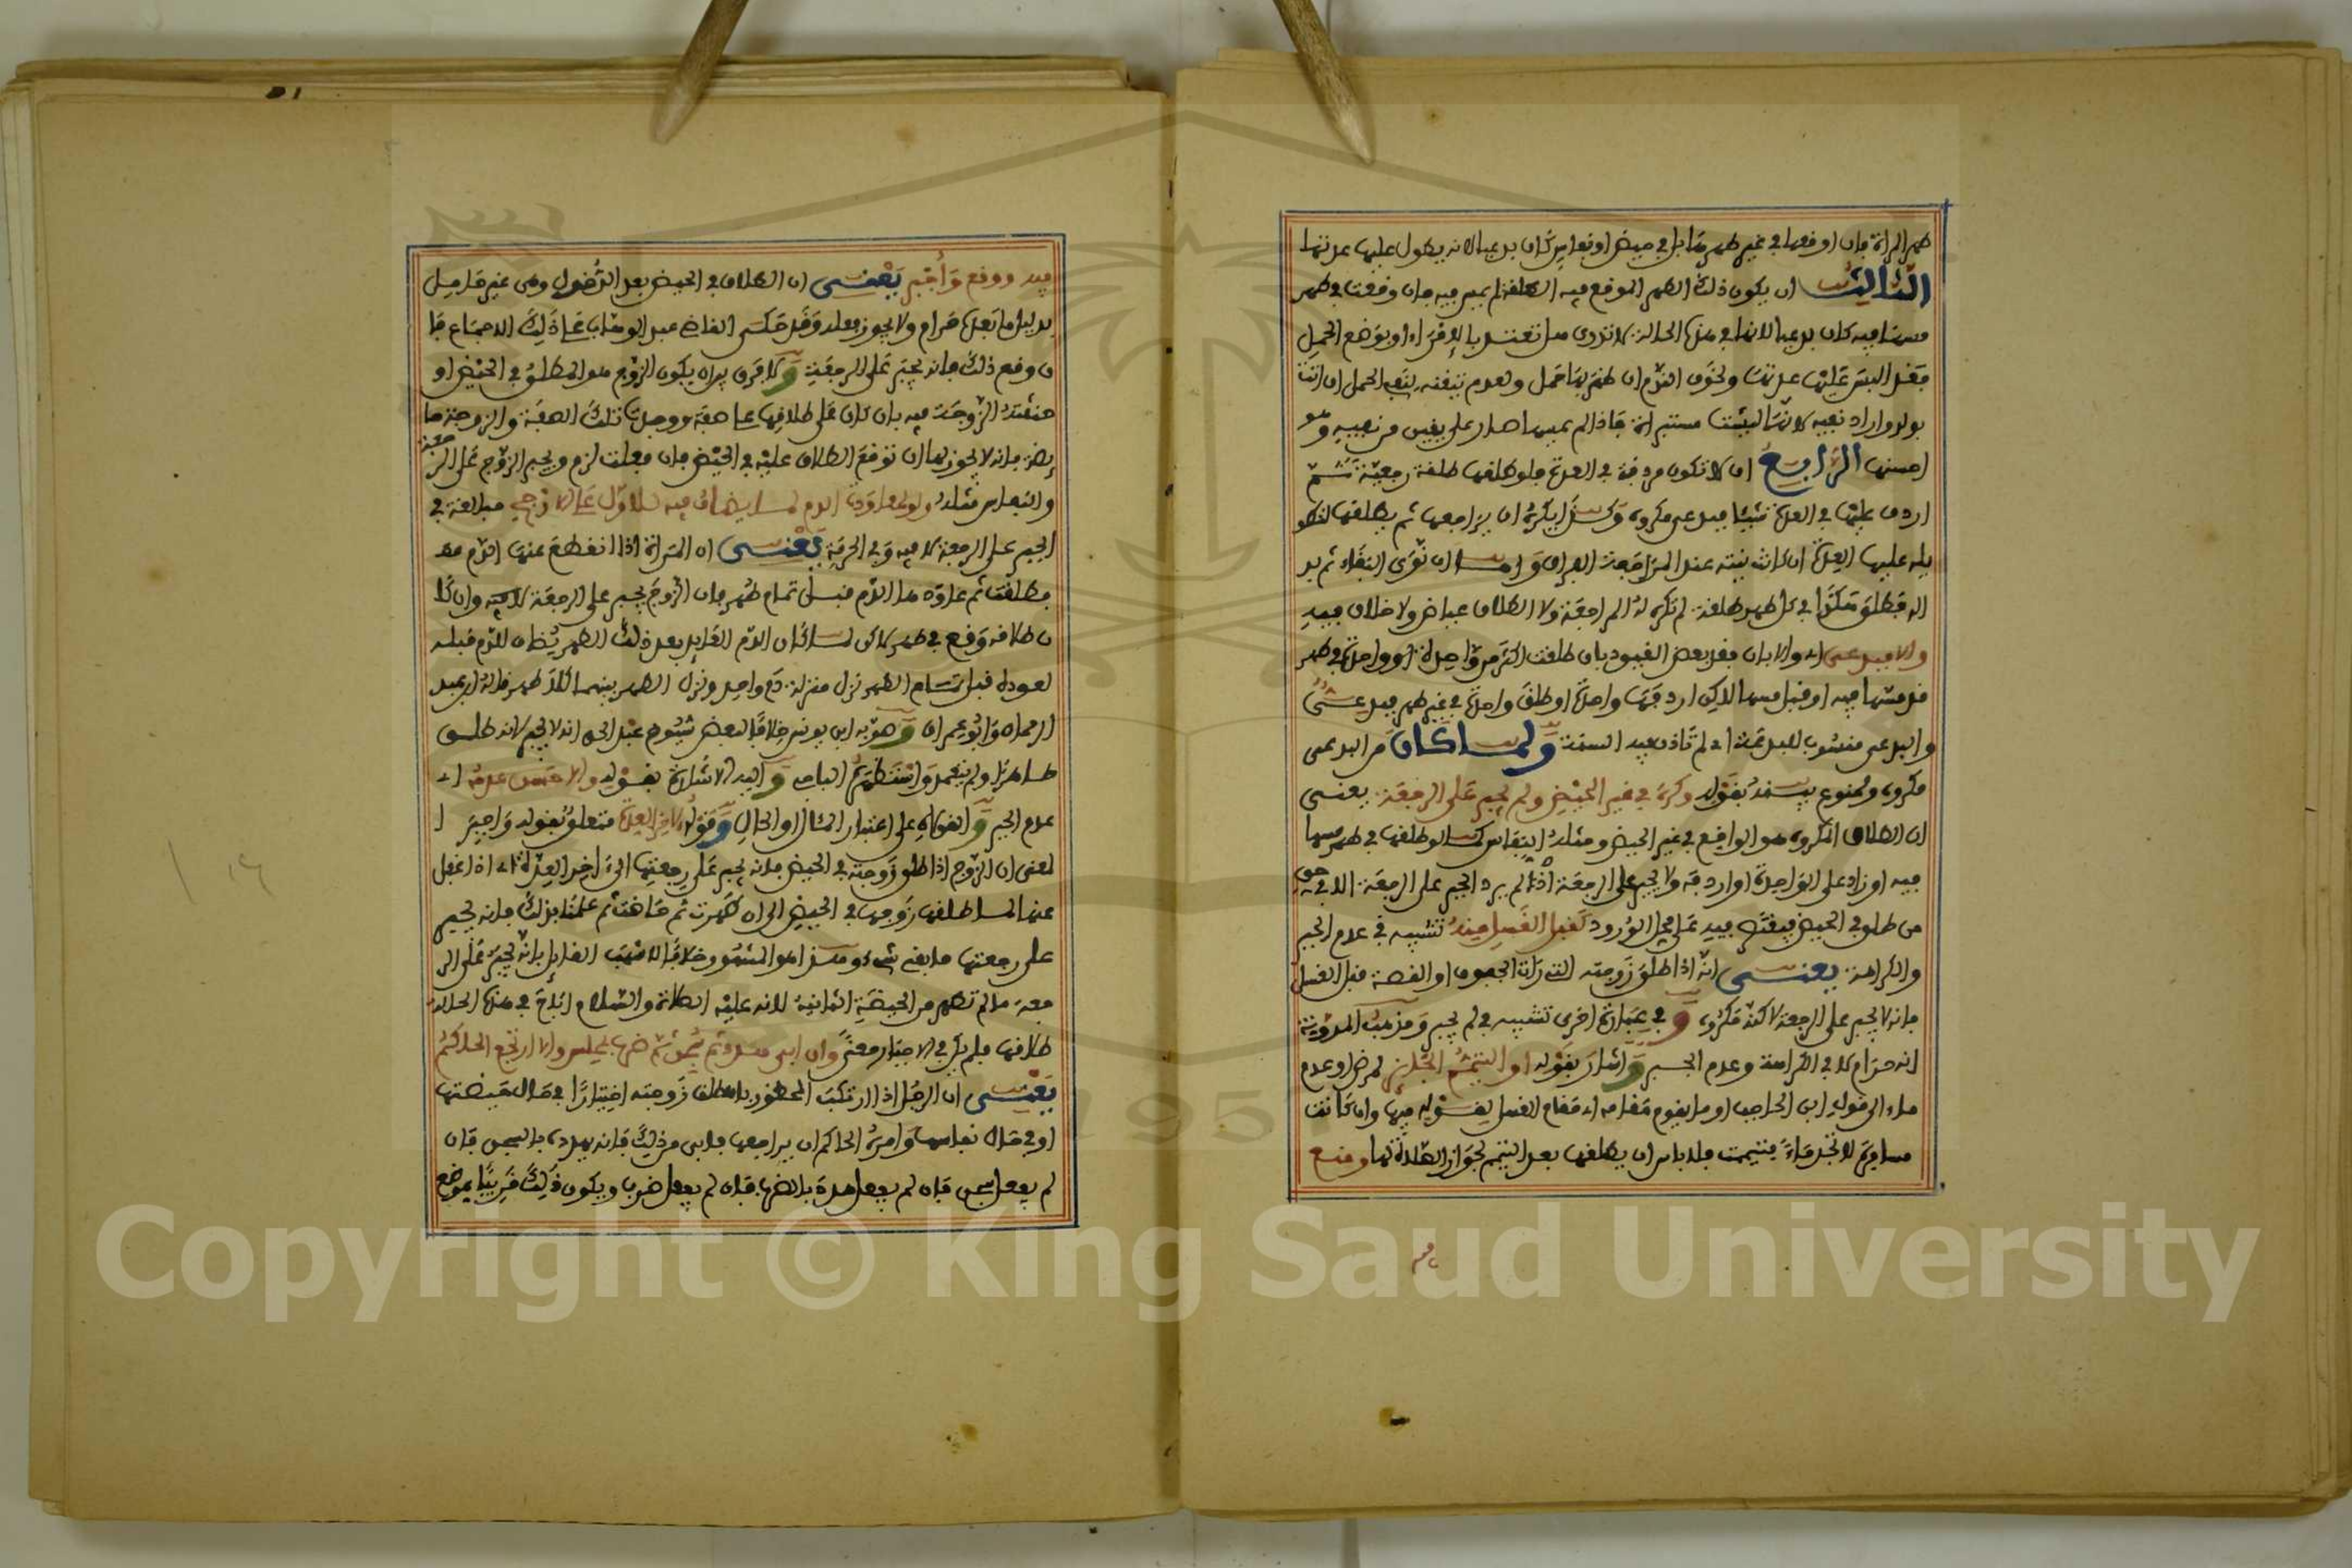 طهر المراة فان اوقعها في غير طهر بل في حيض او نفاس كان بدعيا لانه يطول عليها عدتها
الثالث ان يكون ذلك الطهر الموقع فيه الطلقة لم يمس فيه فان وقعت في طهر
مسها فيه كان بدعيا لانها في هذه الحالة لا تدري هل تعتد بالاقراء او بوضع الحمل
فقد البس عليها عدتها ولخوف الندم ان ظهر بها حمل ولعدم تيقنه لنفي الحمل ان اتت
بولد واراد نفيه لانها ليست مستبراة فاذا لم يمسها صار على يقين من نفيه وهو
احسنها الرابع ان لا تكون مردفة في العدة فلو طلقها طلقة رجعية ثم
اردف عليها في العدة شيئا فبدعي مكروه وكذا يكره ان يراجعها ثم يطلقها لتطو
يله عليها العدة ان كانت نيته عند المراجعة الفراق واما ان نوى البقاء ثم بد
اله فطلق هكذا في كل طهر طلقة لم تكره له المراجعة ولا الطلاق عياض ولا خلاف فيه
والا فبدعي اي والا بان فقد بعض القيود بان طلقت اكثر من واحدة او واحدة في طهر
قد مسها فيه او قبل مسها لاكن اردفها واحدة او طلق واحدة في غير طهر فبدعي
والبدعي منسوب للبدعة اي لم تاذن فيه السنة ولما كان من البدعي
مكروه وممنوع بينه بقوله وكره في غير الحيض ولم يجبر على الرجعة يعني
ان الطلاق المكروه هو الواقع في غير الحيض ومثله النفاس كما لو طلقها في طهر مسها
فيه او زاد على الواحدة او اردفه ولا يجبر على الرجعة اذ لم يرد الجبر على الرجعة الا في حق
من طلق في الحيض فيقتصر فيه على محل الورود كقبل الغسل منه تشبيه في عدم الجبر
والكراهة يعني انه اذا طلق زوجته التي رات الجفوف او القصة قبل الغسل
فانه لا يجبر على الرجعة لاكنه مكروه وفي عبارة اخرى تشبيه في لم يجبر ومذهب المدونة
انه حرام لا في الكراهة وعدم الجبر واشار بقوله او التيمم الجائز لمرض او عدم
ماء الى قول ابن الحاجب او ما يقوم مقامه اي مقام الغسل لقوله فيها وان كانت
مسافرة لا تجد ماء فتيممت فلا باس ان يطلقها بعد التيمم لجواز الصلاة لها ومنع
فيه ووقع واجبر يعني ان الطلاق في الحيض بعد الدخول وهي غير حامل
بدليل ما بعده حرام ولا يجوز فعله وقد حكى القاضي عبد الوهاب على ذلك الاجماع فا
ن وقع ذلك فانه يجبر على الرجعة ولا فرق بين ان يكون الزوج هو المطلق في الحيض او
حنثته الزوجة فيه بان كان على طلاقها على صفة ووجدت تلك الصفة والزوجة حا
ئض فانه لا يجوز لها ان توقع الطلاق عليه في الحيض فان فعلت لزم ويجبر الزوج على الرجعة
والنفاس مثله ولو لمعاودة الدم لما يضاف فيه للاول على الارجح مبالغة في
الجبر على الرجعة لا فيه وفي الحرمة يعني ان المراة اذا انقطع عنها الدم
فطلقت ثم عاودها الدم قبل تمام طهر فان الزوج يجبر على الرجعة لا فيه وان كا
ن طلاقه وقع في طهر لاكن لما كان الدم العايد بعد ذلك الطهر يضاف للدم قبله
لعوده قبل تمام الطهر نزل منزلة دم واحد ونزل الطهر بينهما كلا طهر قاله ابن عبد
الرحمان وابو عمران وصوبه ابن يونس خلافا لبعض شيوخ عبد الحق انه لا يجبر لانه طلق
طاهرا ولم يتعمد واستظهره الباجي واليه الاشارة بقوله والاحسن عدمه اي
عدم الجبر والقولان على اعتبار المثال او الحال وقوله لاخر العدة متعلق بقوله واجبر ا
لمعنى ان الزوج اذا طلق زوجته في الحيض فانه يجبر على رجعتها الى اخر العدة اي اذا غفل
عنها لما طلقها زوجها في الحيض الى ان طهرت ثم حاضت ثم علمنا بذلك فانه يجبر
على رجعتها ما بقي شيء وهذا هو المشهور خلافا لاشهب القايل بانه يجبر على الر
جعة ما لم تطهر من الحيضة الثانية لانه عليه الصلاة والسلام اباح في هذه الحالة
طلاقها فلم يكن في الاجبار معنى وان ابى هدد ثم سجن ثم ضرب بمجلس والا ارتجع الحاكم
يعني ان الرجل اذا ارتكب المحظور بان طلق زوجته اختيارا في حال حيضتها
او في حال نفاسها وامره الحاكم ان يراجعها فابى من ذلك فانه يهدده بالسجن فان
لم يفعل سجن فان لم يفعل هدد بالضرب فان لم يفعل ضرب ويكون ذلك قريبا بموضع
Copyright © King Saud University
195